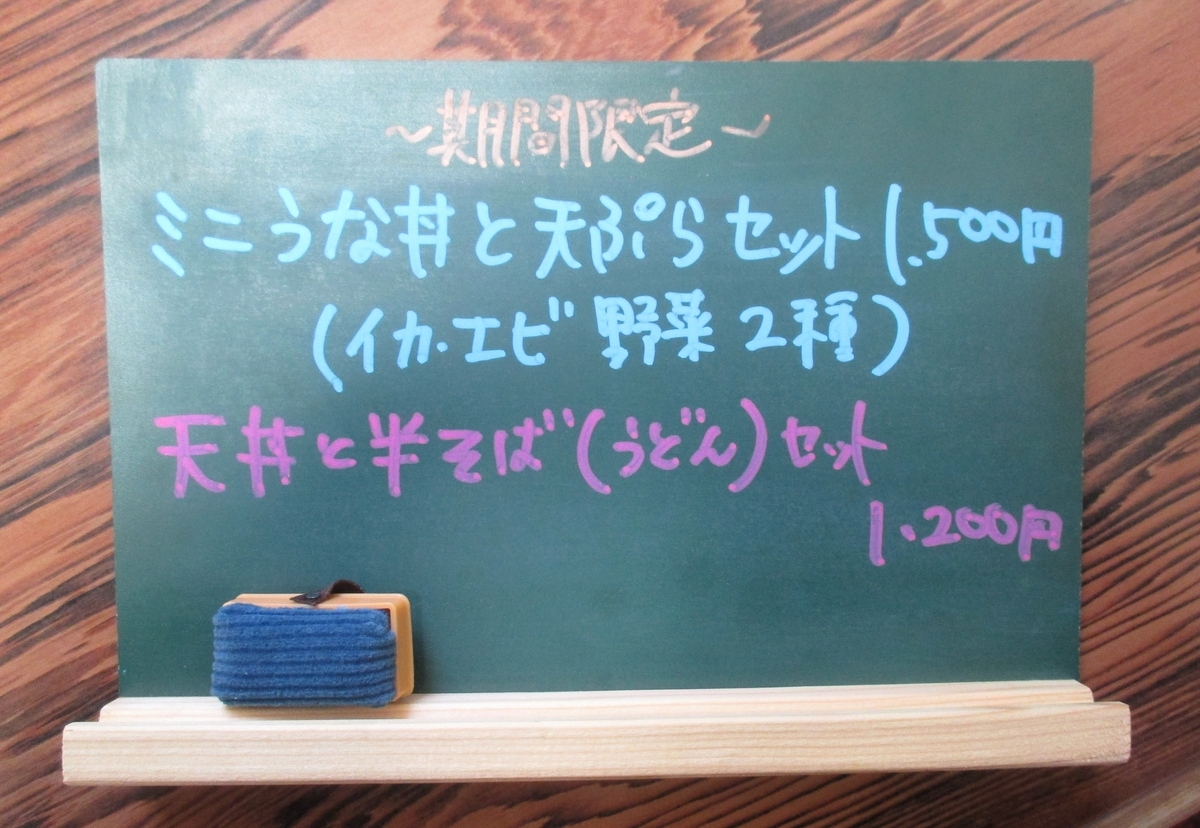 ～期間限定～
ミニうな丼と天ぷらセット 1.500円
(イカ・エビ 野菜 2種)
天丼と半そば(うどん)セット
1.200円